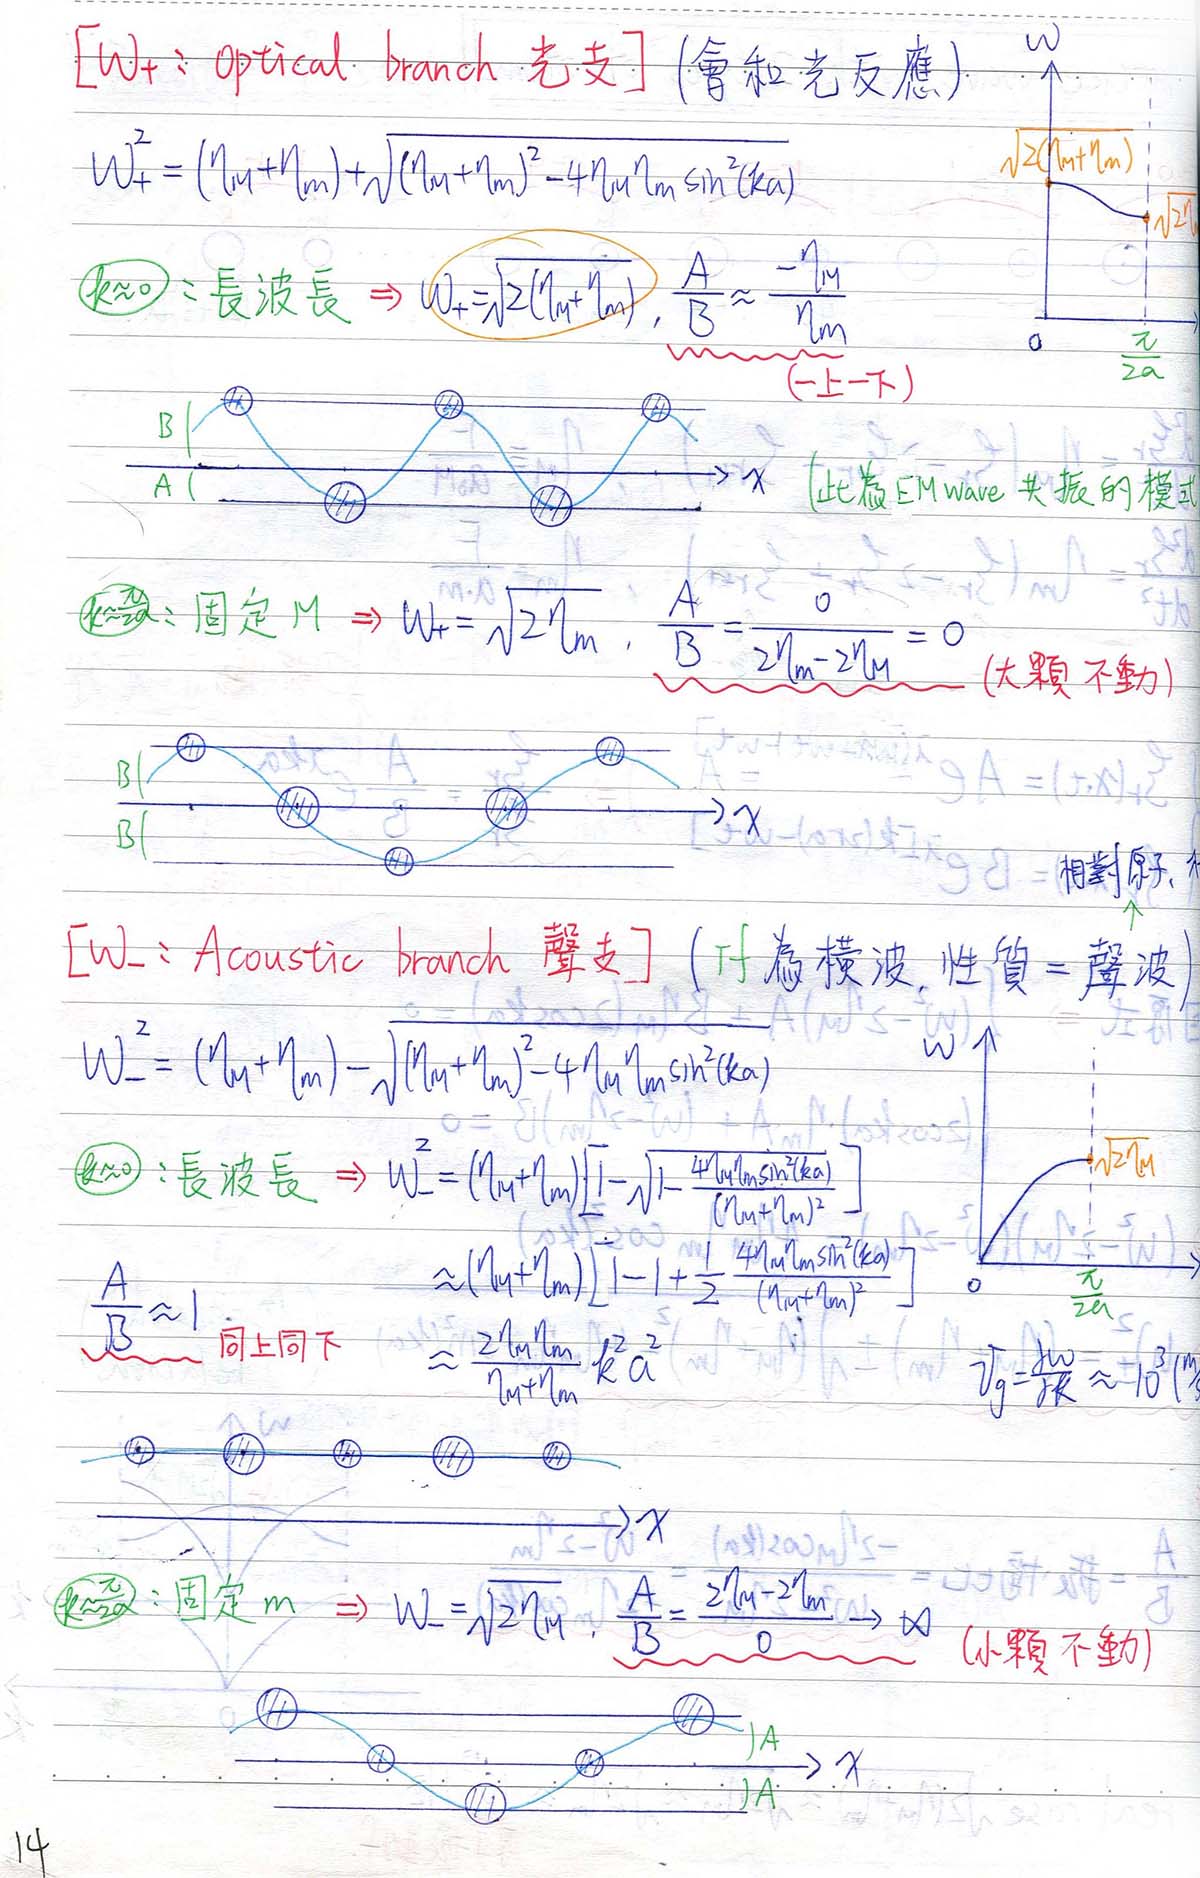 [W₊ : optical branch 光支] (會和光反應)
W₊² = (η_M+η_m)+√((η_M+η_m)²-4η_Mη_m sin²(ka))
W
√2(η_M+η_m)
√2η
0
π/2a
k≈0 : 長波長 ⇒ W₊=√2(η_M+η_m), A/B ≈ -η_M/η_m
(一上一下)
B
A
x
(此為EM wave 共振的模式
k≈π/2a : 固定 M ⇒ W₊ = √2η_m , A/B = 0/(2η_m-2η_M) = 0
(大顆不動)
B
B
x
相對原子、
[W₋ : Acoustic branch 聲支] (Tf 為橫波, 性質 = 聲波)
W₋² = (η_M+η_m) - √((η_M+η_m)²-4η_Mη_m sin²(ka))
W
√2η_M
0
π/2a
k≈0 : 長波長 ⇒ W₋² = (η_M+η_m)[1-√(1-4η_Mη_m sin²(ka)/(η_M+η_m)²)]
≈(η_M+η_m)[1-1+1/2 4η_Mη_m sin²(ka)/(η_M+η_m)²]
A/B ≈ 1
同上同下
≈ 2η_Mη_m/(η_M+η_m) k²a²
v_g = dω/dk ≈ 10³ (m/s
x
k≈π/2a : 固定 m ⇒ W₋ = √2η_M , A/B = (2η_M-2η_m)/0 → ∞
(小顆不動)
A
A
x
14